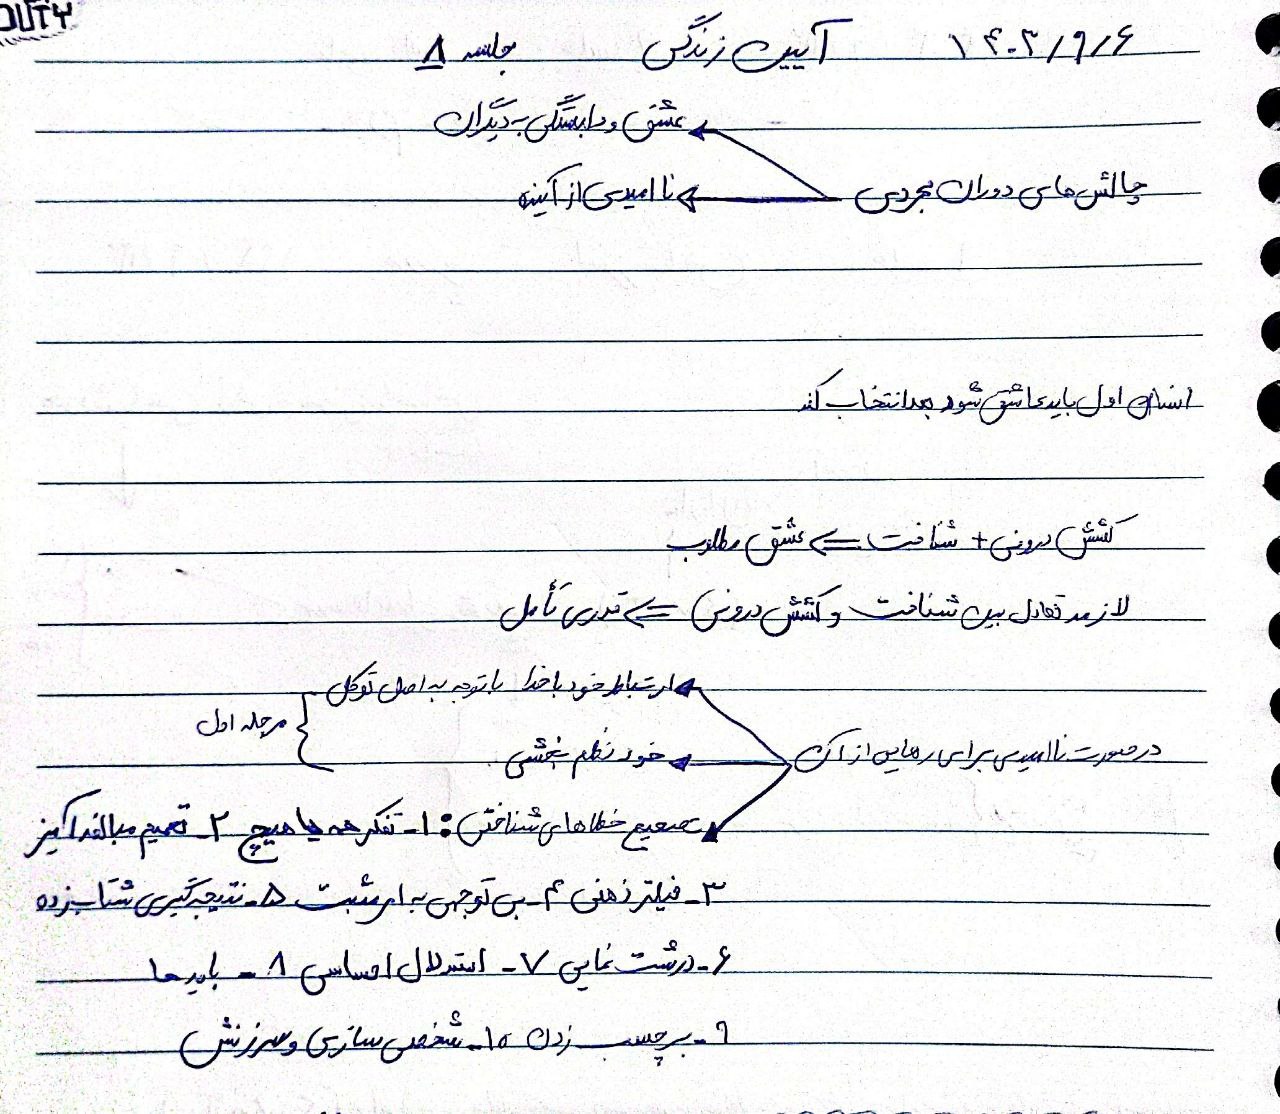 DUTY
۱۴۰۳/۹/۶ آیین زندگی جلسه ۸
عشق و دلبستگی به دیگران
چالش های دوران مجردی
نا امیدی از آینده
انسان اول باید عاشق شود بعد انتخاب کند
کشش درونی + شناخت <= عشق مطلوب
لازمه تعادل بین شناخت و کشش درونی <= قدری تأمل
ارتباط خود با خدا با توجه به اصل توکل
مرحله اول
در صورت نا امیدی برای رهایی از آن
خود نظم بخشی
تصحیح خطاهای شناختی: ۱- تفکر همه یا هیچ ۲- تعمیم مبالغه آمیز
۳- فیلتر ذهنی ۴- بی توجهی به امر مثبت ۵- نتیجه گیری شتاب زده
۶- درشت نمایی ۷- استدلال احساسی ۸- بایدها
۹- برچسب زدن ۱۰- شخصی سازی و سرزنش